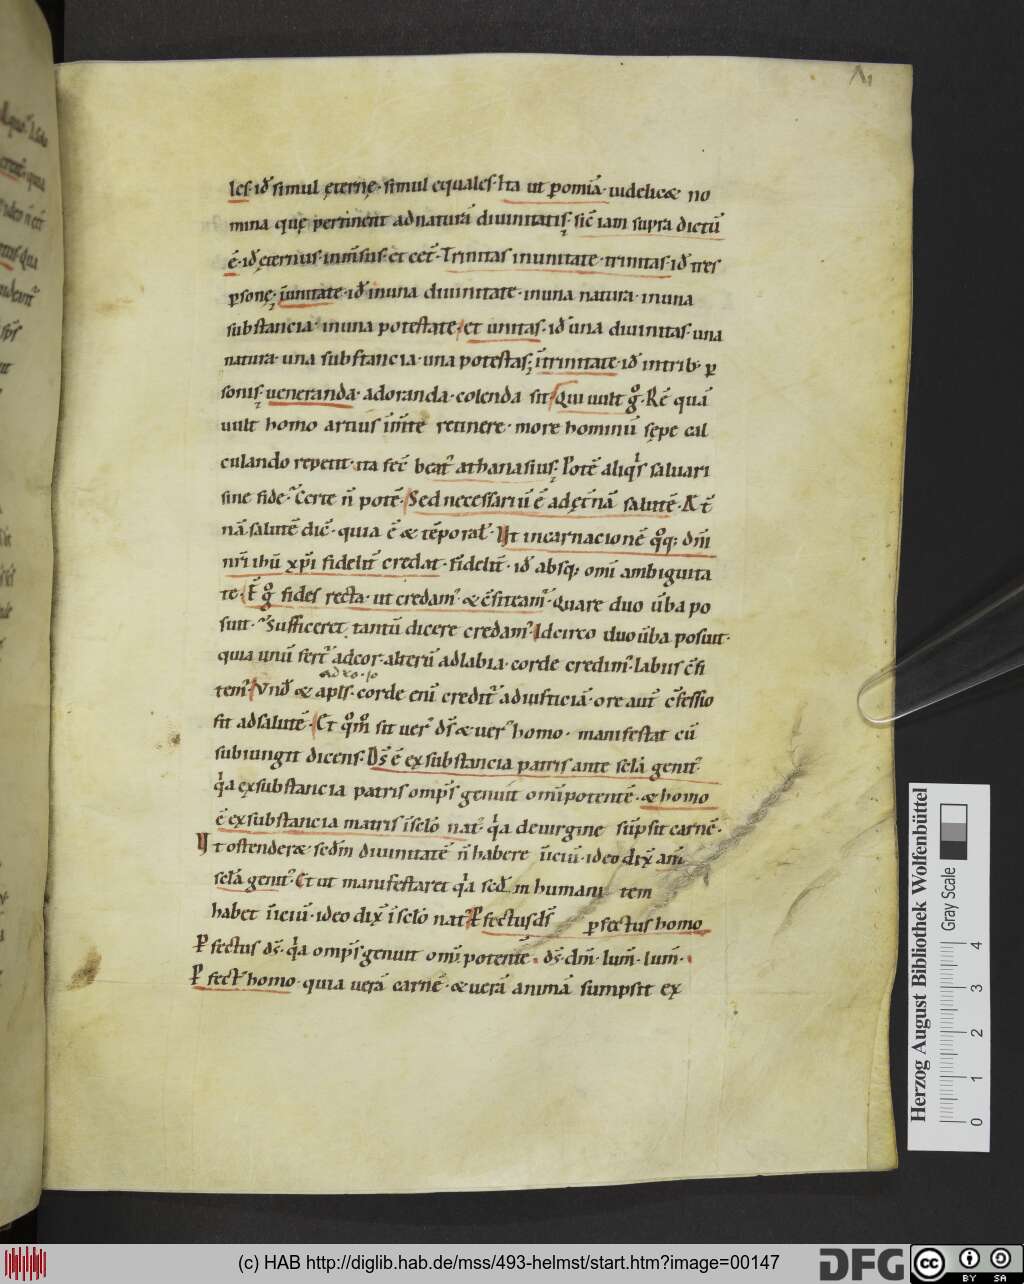 les· id̄ simul ęternę· simul equales· Ita ut p omīa· uidelicæ no
mina quę pertinent ad naturā diuinitatis; sic̄ iam supra dictū
ē· id̄ ęternus· inm̄sus· et cet̄· Trinitas in unitate· trinitas· id̄ tres
psonę; ī unitate· id̄ in una diuinitate· in una natura· in una
substancia· in una potestate· et unitas· id̄ una diuinitas· una
natura· una substancia· una potestas; ī trinitate· id̄ in trib; p
sonis; ueneranda· adoranda· colenda sit· Qui uult gͦ· Rē quā
uult homo artius īm̄te retinere· more hominū sępe cal
culando repetit· ita fec̄ beat᷒ athanasius; Potē aliqͥs saluari
sine fide· Certe n̄ potē· Sed necessariū ē ad ęt̄nā salutē· Ęt̄
nā salutē dic̄· quia ē æ tēporal᷒· Vt incarnacionē qͦq; dn̄i
nr̄i ihū xp̄i fidelit̄ credat· fidelit̄· id̄ absq; om̄i ambiguita
te· Ē gͦ fides recta· ut credam᷒· æ c̄fiteam᷒· Quare duo ūba po
suit· Sufficeret tantū dicere credam᷒· Idcirco duo ūba posuit·
quia unū fert᷒ ad cor· alterū ad labia· corde credim᷒· labiis c̄fi
tem᷒· Vnd̄ æ apl̄s· corde eni credit᷒ ad iusticiā· ore aut̄ c̄fessio
fit ad salutē· Et qͦm̄ sit uer᷒ ds̄ æ uer᷒ homo· manifestat cū
subiungit dicens· Ds̄ ē ex substancia patris ante sclā genit᷒·
qͥa ex substancia patris omp̄s genuit om̄ipotentē· æ homo
ē ex substancia matris ī sclo nat᷒· qͥa de uirgine sūpsit carnē·
Vt ostenderæ sed̄m diuinitatē n̄ habere īiciū· ideo dix̄ an̄
sclā genit᷒· Et ut manifestaret qͥa sed̄m humani tem
habet īiciū· ideo dix̄ ī sclo nat᷒· Pfectus ds̄ pfectus homo
Pfectus ds̄· qͥa omp̄s genuit om̄ipotente· ds̄· dm̄· lum̄· lum̄·
Pfect᷒ homo· quia uerā carnē· æ uerā animā sumpsit ex
Herzog August Bibliothek Wolfenbüttel
Gray Scale
0 1 2 3 4
(c) HAB http://diglib.hab.de/mss/493-helmst/start.htm?image=00147
DFG
cc BY SA